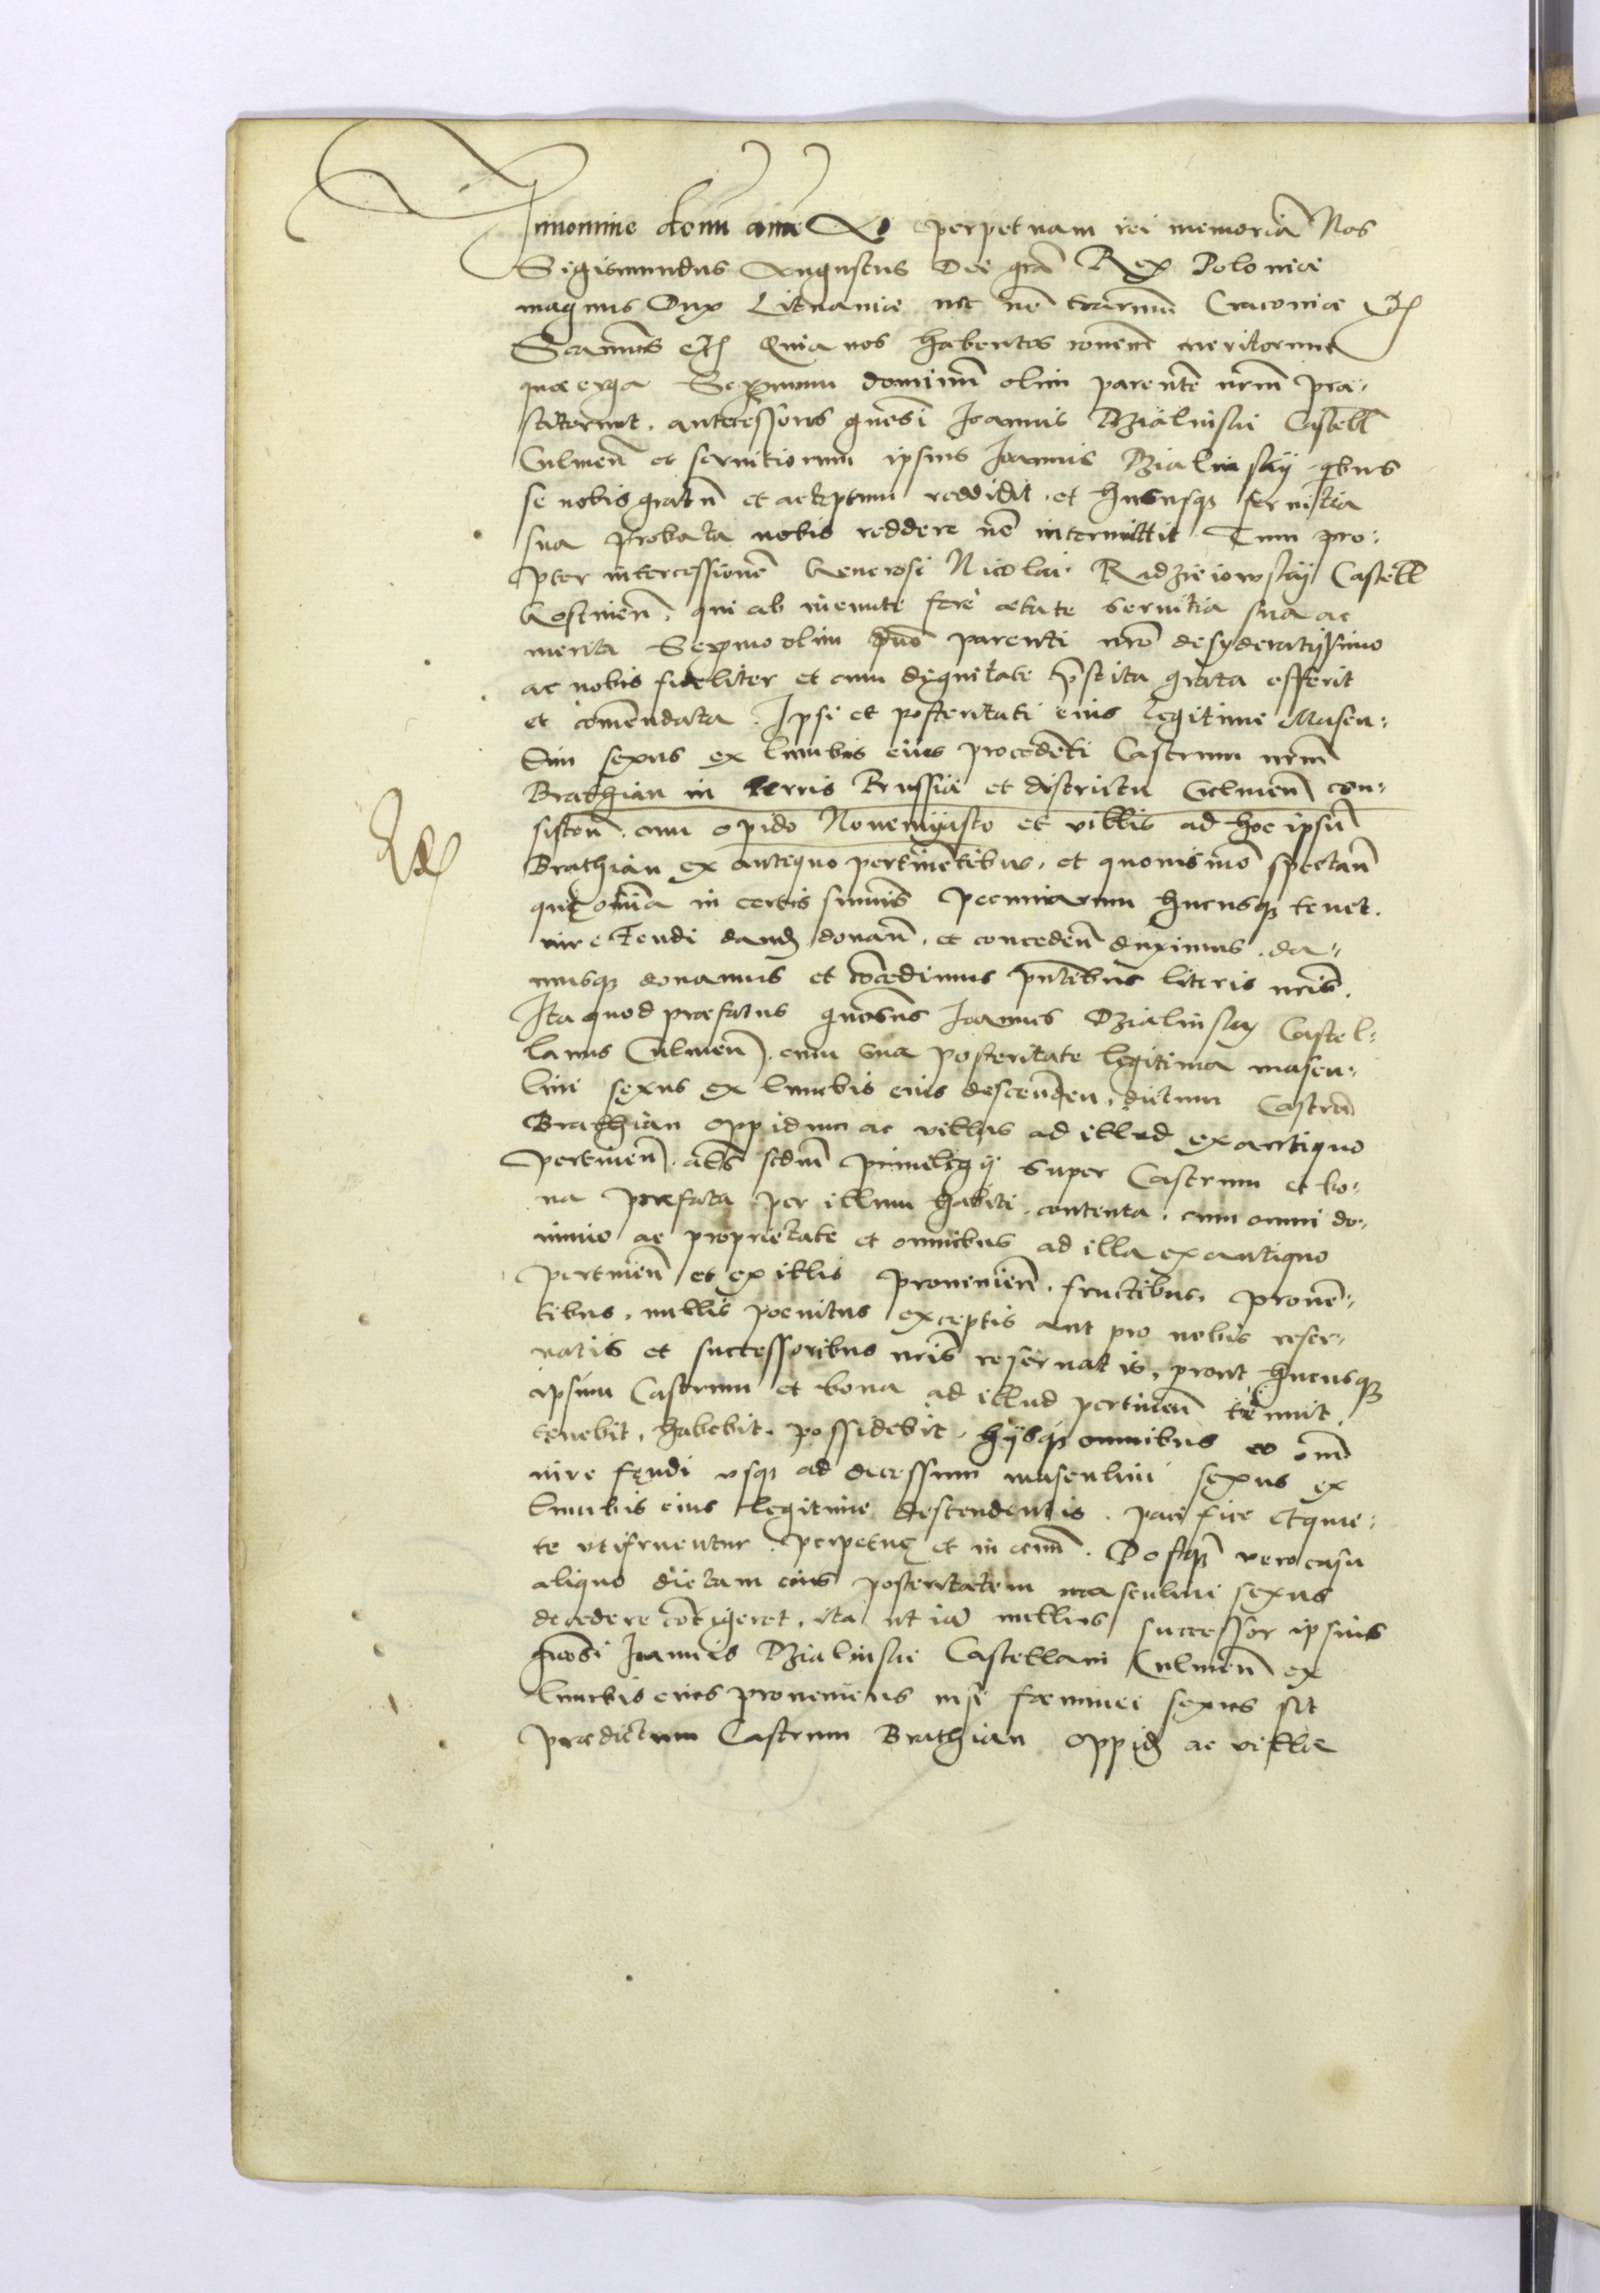 In nomine domi ame Ad perpetuam rei memoriā Nos
Sigismundus Augustus Dei grā Rex Poloniae
magnus Dux Lituaniae nec nō terrarum Cracoviae etc
quia nos habentes meritorum
quae erga Sermum dominum olim parentē nrm̄ prae-
stiterunt. antecessoris gn̄esi Joannis Dzialinski Castell
Culmeñ et servitiorum ipsius Joannis Dzialinskij qbus
se nobis gratū et acceptum reddidit. et hucusq servitia
sua probata nobis reddere nō intermittit Tum pro-
pter intercessionē Generosi Nicolai Radzieiowskij Castell
Gostineñ. qui ab ineunte fere aetate servitia sua ac
merita Sermo olim dn̄o parenti nrō desyderatissimo
ac nobis fideliter et cum dignitate p̄stita grata offerit
et comēndata. Ipsi et posteritati eius legitime Mascu-
lini sexus ex lumbis eius procedēti Castrum nrm̄
Brathian in terris Prussiae et districtu Culmeñ con-
sisteñ. cum opido Novemiasto et villis ad hoc ipsū
Brathian ex antiquo pertinētibus. et quovismō spectañ
quę om̄ia in certis sum̄is pecuniarum hucusq tenet.
iure feudi dand donañ. et concedeñ duximus. da-
musq donamus et cōcedimus pn̄tibus literis nris̄.
Ita quod praefatus gn̄osus Joannes Dzialinsky Castel-
lanus Culmeñ. cum sua posteritate legitima mascu-
lini sexus ex lumbis eius descenden. dictum Castrū
Brathian oppidum ac villas ad illud ex antiquo
pertineñ. al̄s scdm̄ privilegij super Castrum et bo-
na praefata per illum habiti. contenta. cum omni do-
minio ac proprietate et omnibus ad illa ex antiquo
pertineñ et ex illis provenieñ. fructibus. provē-
tibus. nullis poenitus exceptis aut pro nobis reser-
vatis et successoribus nris̄ reservatis. prout hucusq
ipsum Castrum et bona ad illud pertineñ tenuit
tenebit. habebit. possidebit. hijsq omnibus eo om̄
iure feudi usq ad decessum masculini sexus ex
lumbis eius legitime descendentis. pacifice et quie-
te utifruentur. perpetuę et in aevum. Postq vero casu
aliquo dictam eius posteritatem masculini sexus
decedere cōtigeret. ita ut iā nullus successor ipsius
gn̄osi Joannis Dzialinski Castellani Culmeñ ex
lumbis eius proveniens nisi foeminei sexus sit
praedictum Castrum Brathian oppid ac villae